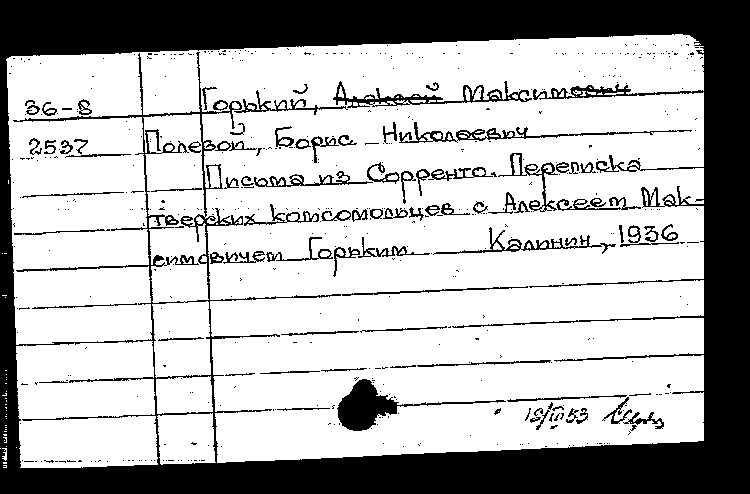 36-8 Горький, Алексей Максимович
2537 Полевой, Борис Николаевич
Письма из Сорренто. Переписка
тверских комсомольцев с Алексеем Мак-
симовичем Горьким. Калинин, 1936
18/III 53